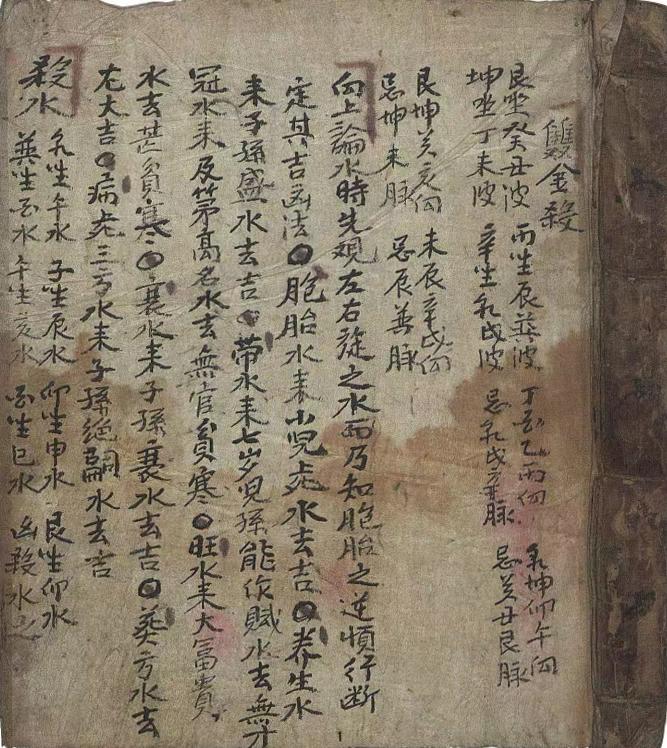 雙金殺
艮坐癸丑破 丙坐辰巽破 丁 乙丙向 乾坤卯午向
坤坐丁未破 辛坐乾戌破 忌乾戌辛脉 忌癸丑艮脉
艮坤癸亥向 未辰辛戌向
忌坤未脉 忌辰巽脉
向上論水時先觀左右旋之水而乃知胞胎之逆順行断
定其吉凶法○胞胎水来小児死水去吉○养生水
来子孫盛水去吉○帶水来七岁児孫能作賦水去無才
冠水来及第高名水去無官貧寒○旺水来大冨貴
水去甚貧寒○衰水来子孫衰水去吉○葬方水去
尤大吉○病死三方水来子孫絶嗣水去吉
殺水 乾坐午水 子坐辰水 卯坐申水 艮坐卯水
巽坐酉水 午坐亥水 酉坐巳水 凶殺水也